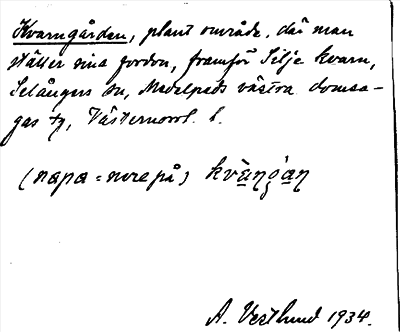 Kvarngården, plant område, där man
ställer sina fordon, framför Silje kvarn,
Selångers sn, Medelpads västra domsa-
gas tg, Västernorrl. l.
(napa = nere på) kvàŋgan
A. Vestlund 1934.